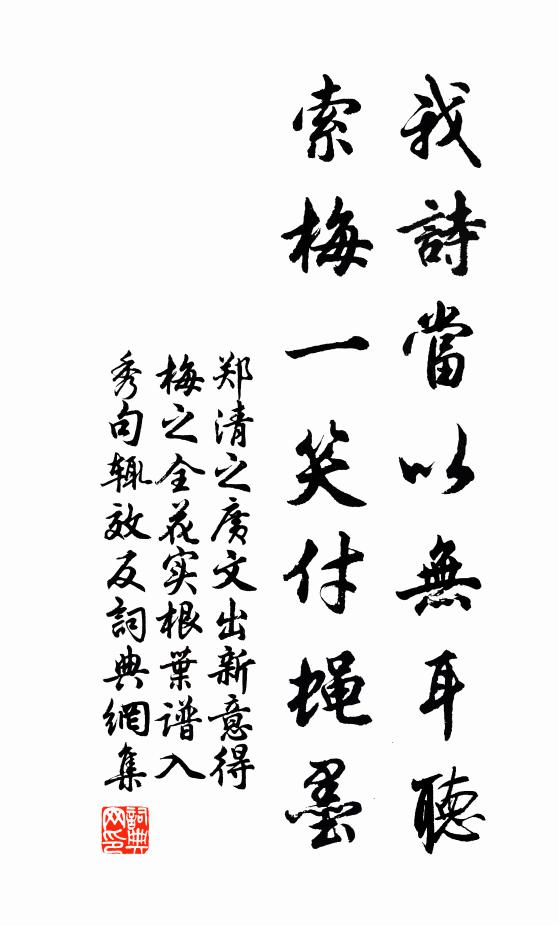 我詩當以無耳聽
索梅一笑付蝇墨
郑清之廣文出新意得
梅之全花实根葉谱入
秀句辄效反詞典網集
詞典网印